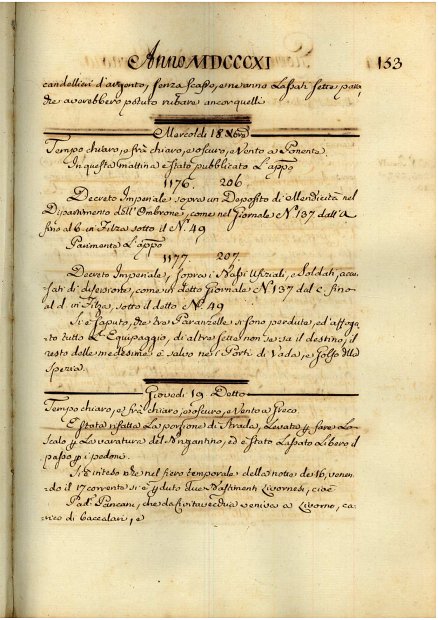 Anno MDCCCXI 153
candellieri d'argento, senza scasso, e ne anno Lassati sette para
che averebbero potuto rubare ancor quelli
Mercoldi 18 Xbre
Tempo chiaro, e frà chiaro, e oscuro, e Vento a Ponente.
In questa mattina è stato pubblicato L'appo
1176. 206
Decreto Imperiale sopra un Deposito di Mendicità nel
Dipartimento dell'Ombrone, come nel Giornale N.º 137 dall'a
fino al 6 in Filza sotto il N.º 49
Parimente L'appo
1177. 207.
Decreto Imperiale, sopra i Ufiziali, e Soldati, accu
sati di diserzione, come in detto Giornale N.º 137 dal c. fino
al d. in Filza, sotto il detto N.º 49
Si è saputo, che tre Paranzelle si sono perdute, ed affoga
to tutto L'Equipaggio, di altre sette non si sa il destino, il
resto delle medesime è salvo nei Porti di Vada, e Golfo della
Spezia.
Giovedi 19 Detto
Tempo chiaro, e frà chiaro, e oscuro, e Vento a Greco.
È stata rifatta La porsione di Strada, Levata p fare Lo
Scalo p La varatura del Brigantino, ed è stato Lassato Libero il
passo p i pedoni.
Si è inteso che nel fiero temporale della notte de 16, venen
do il 17 corrente si è pduto due Bastimenti Livornesi, cioè
Pad.e Pancani, che da Civitavecchia veniva a Livorno, ca
rico di baccalari, e